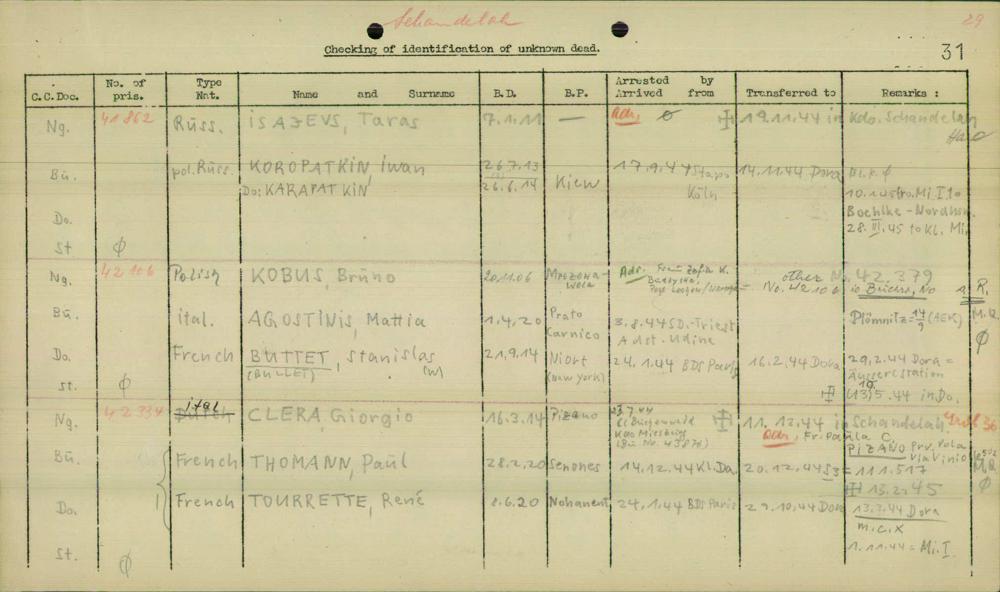 Schandelah
29
Checking of identification of unknown dead.
31
C.C.Doc. No. of pris. Type Nat. Name and Surname B.D. B.P. Arrested by Arrived from Transferred to Remarks :
Ng. 41862 Rüss. iSAJEVS, Taras 7.1.11 — Adr. ø 19.11.44 in Kdo. Schandelah
Bü. pol. Rüss. KOROPATKiN, iwan 26.7.13 Kiew 17.9.44 Stapo Köln 14.11.44 Dora Bl.K. ø
Do: KARAPATKiN 26.6.14
Mi I to
Boehlke - Nordhsn.
Do. 28.III.45 to Kl. Mi.
St ø
Ng. 42106 Polish KOBUS, Brüno 20.11.06 Adr. Frau Zofia K. other No. 42.379
No. 42106 R.
Bü. ital. AGOSTiNiS, Mattia 1.4.20 Prato Carnico 3.8.44 SD.-Triest Adst. Udine Plömnitz = 14/9 (AEVS) M.R. ø
Do. French BUTTET, Stanislas 21.9.14 Niort 24.1.44 BDS Paris 16.2.44 Dora 29.2.44 Dora =
(BULLET) (w) (New York) Äussere station
St. ø 5.44 in Do.
Ng. 42334 Dutch ital CLERA, Giorgio 16.3.14 Pizano 11.12.44 in Schandelah
Kdo Misburg
Adr. Fr. Paula C.
PiZANO Prv. Pola
Bü. French THOMANN, Paül 28.2.20 Senones 14.12.44 Kl. Da. 20.12.44 S3 = 111.517 M.R. ø
13.2.45
Do. French TOURRETTE, René 8.6.20 Nohanent 24.1.44 BDS Paris 29.10.44 Dora 13.2.44 Dora
m.c.x
St. ø 1.11.44 = Mi. I.